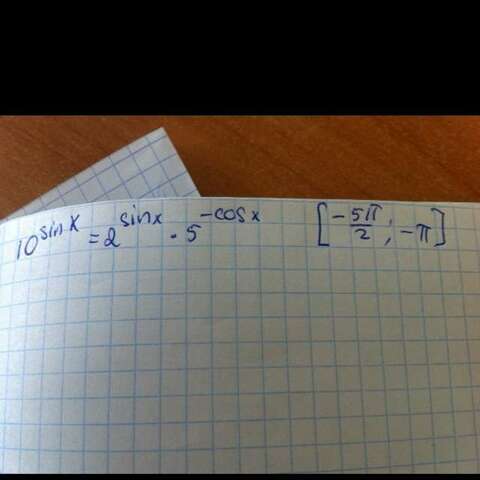 10^sin x = 2^sin x · 5^-cos x [-5π/2; -π]